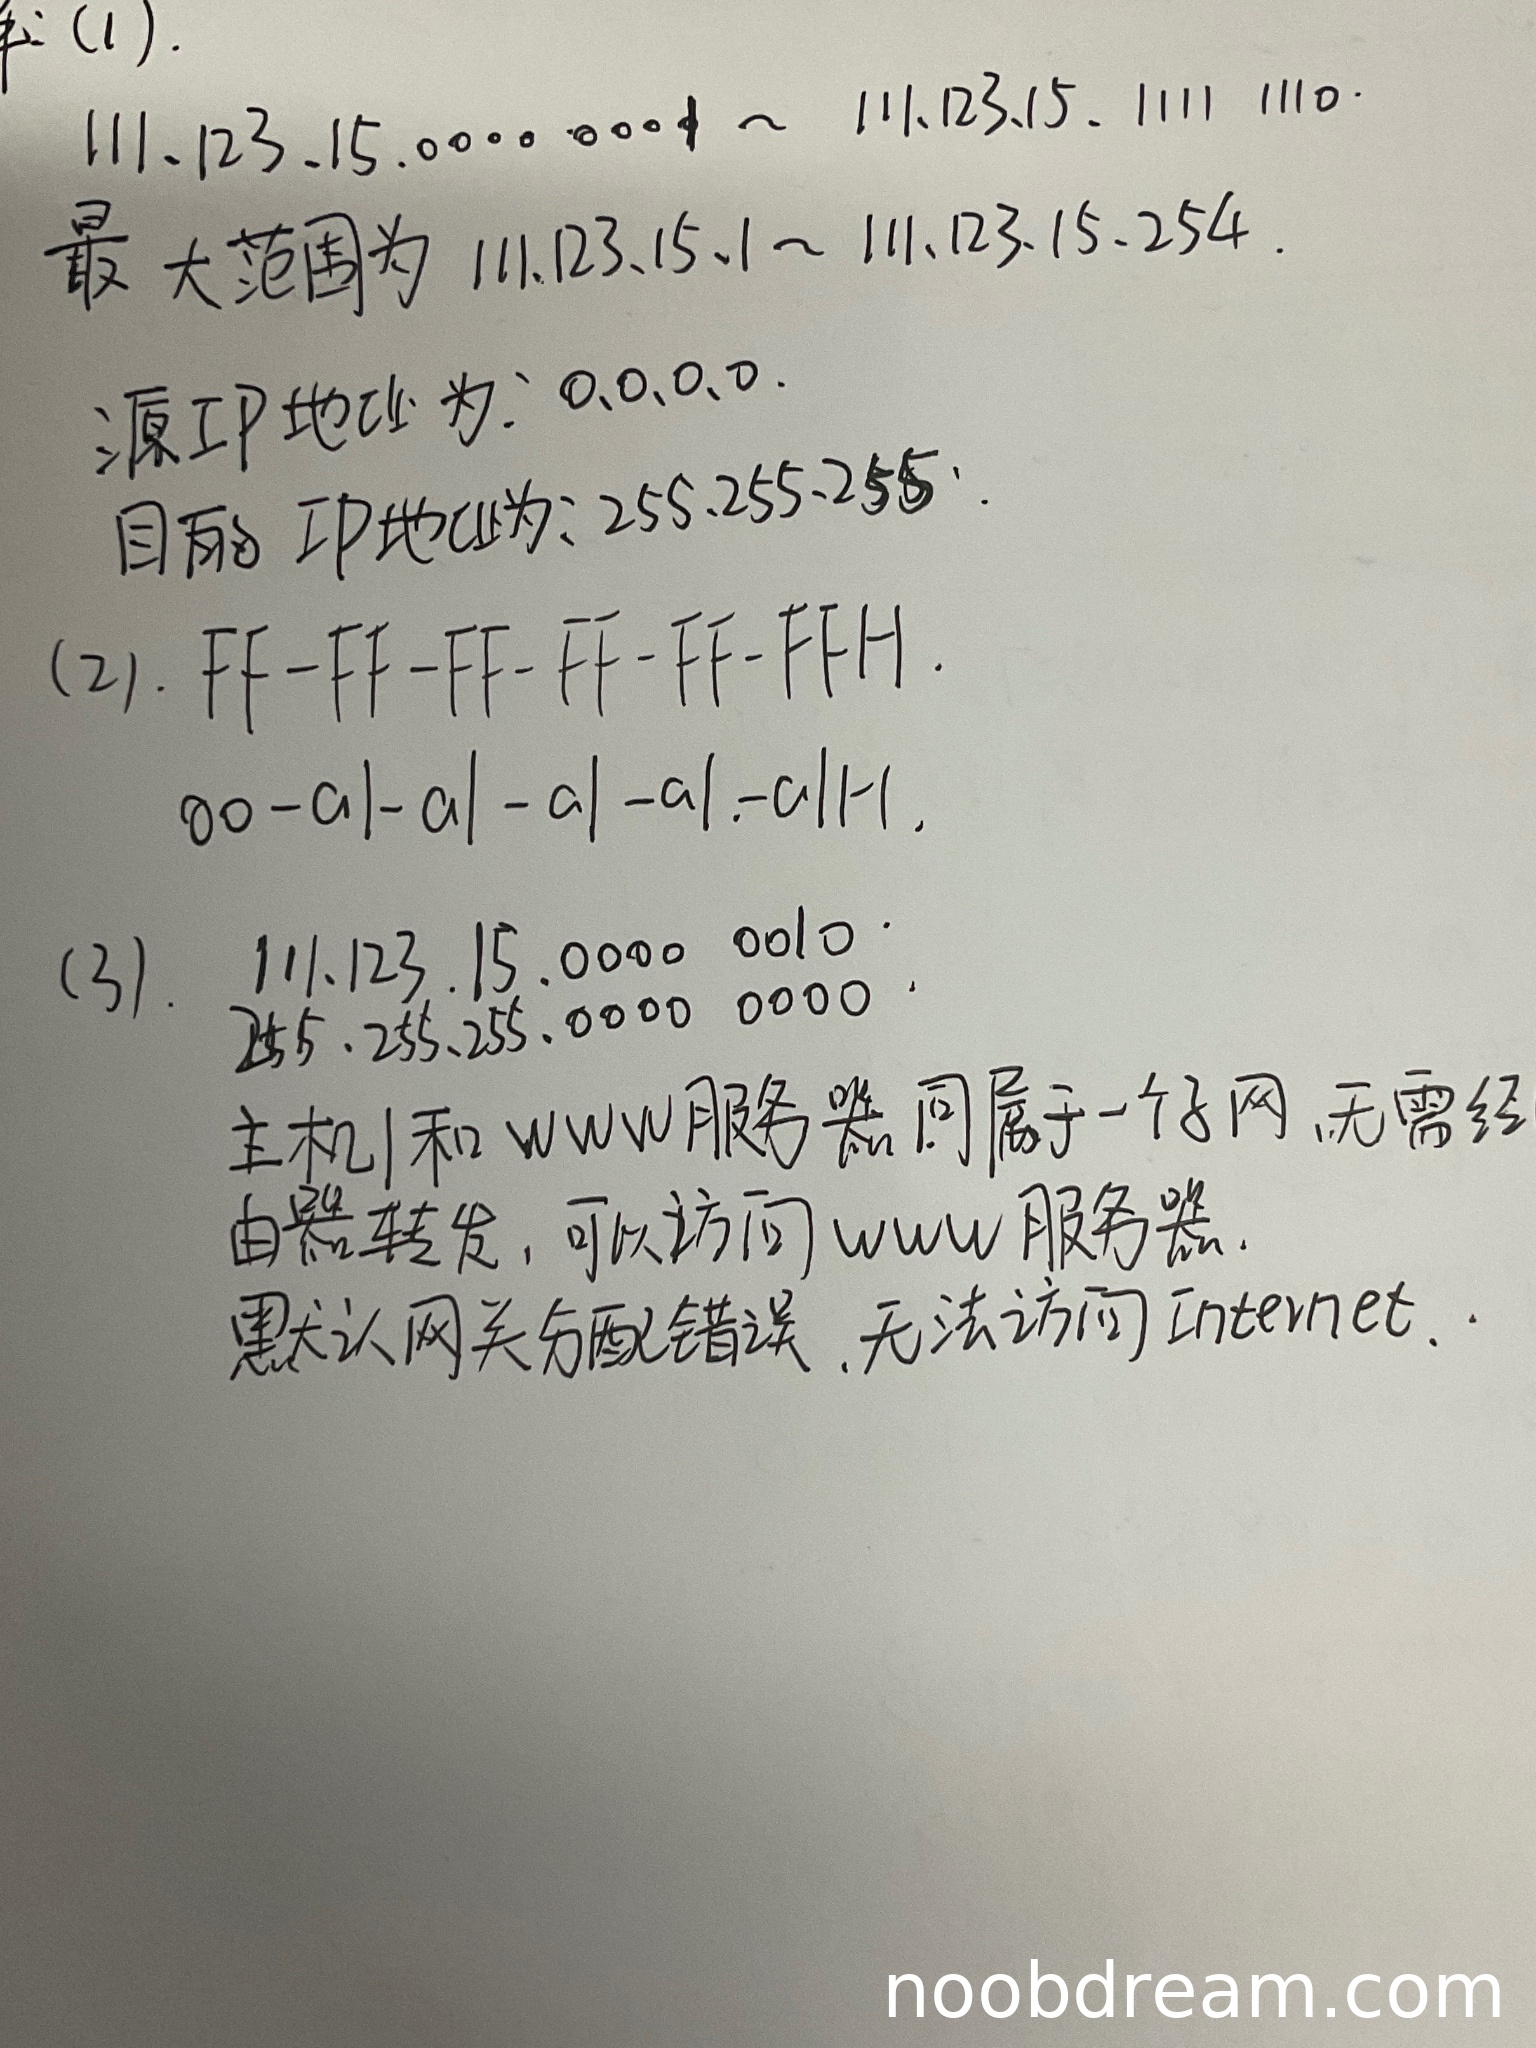 解: (1).
111.123.15.0000 0001 ~ 111.123.15.1111 1110.
最大范围为 111.123.15.1 ~ 111.123.15.254.
源IP地址为: 0.0.0.0.
目的IP地址为: 255.255.255.
(2). FF-FF-FF-FF-FF-FFH.
00-a1-a1-a1-a1-a1H.
(3). 111.123.15.0000 0010.
255.255.255.0000 0000.
主机1和WWW服务器同属于一个子网,无需经
由器转发,可以访问WWW服务器.
默认网关分配错误,无法访问Internet.
noobdream.com